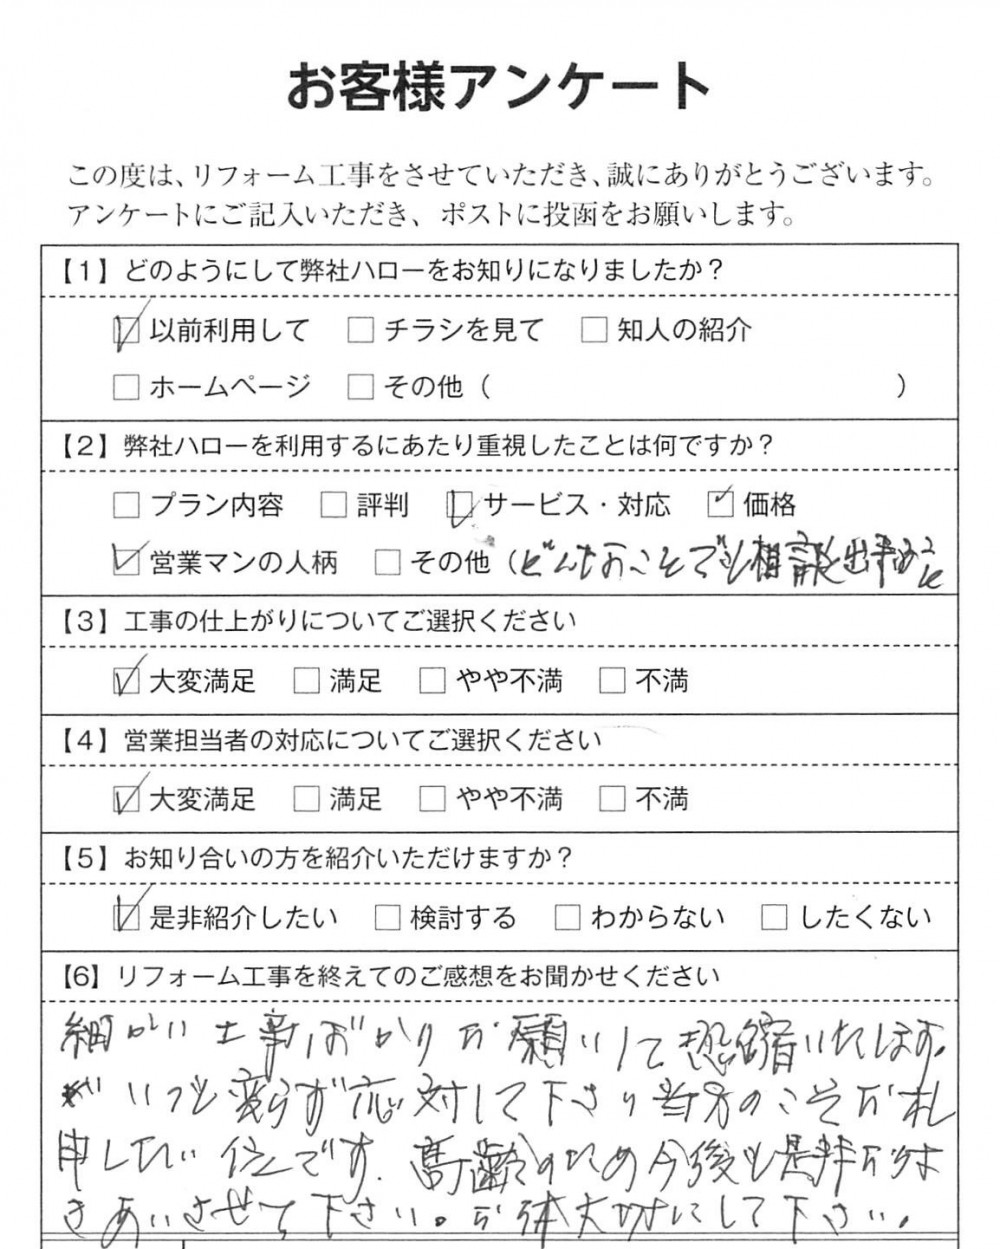 お客様アンケート
この度は、リフォーム工事をさせていただき、誠にありがとうございます。
アンケートにご記入いただき、ポストに投函をお願いします。
【1】どのようにして弊社ハローをお知りになりましたか？
☑以前利用して □チラシを見て □知人の紹介
□ホームページ □その他（ ）
【2】弊社ハローを利用するにあたり重視したことは何ですか？
□プラン内容 □評判 ☑サービス・対応 ☑価格
☑営業マンの人柄 □その他（どんなことでも相談出来ること
【3】工事の仕上がりについてご選択ください
☑大変満足 □満足 □やや不満 □不満
【4】営業担当者の対応についてご選択ください
☑大変満足 □満足 □やや不満 □不満
【5】お知り合いの方を紹介いただけますか？
☑是非紹介したい □検討する □わからない □したくない
【6】リフォーム工事を終えてのご感想をお聞かせください
細かい工事ばかりお願いして恐縮いたします。
がいつも変らず応対して下さり当方のこそお礼
申したい位です。高齢のため今後も是非おつ
きあいさせて下さい。お体大切にして下さい。